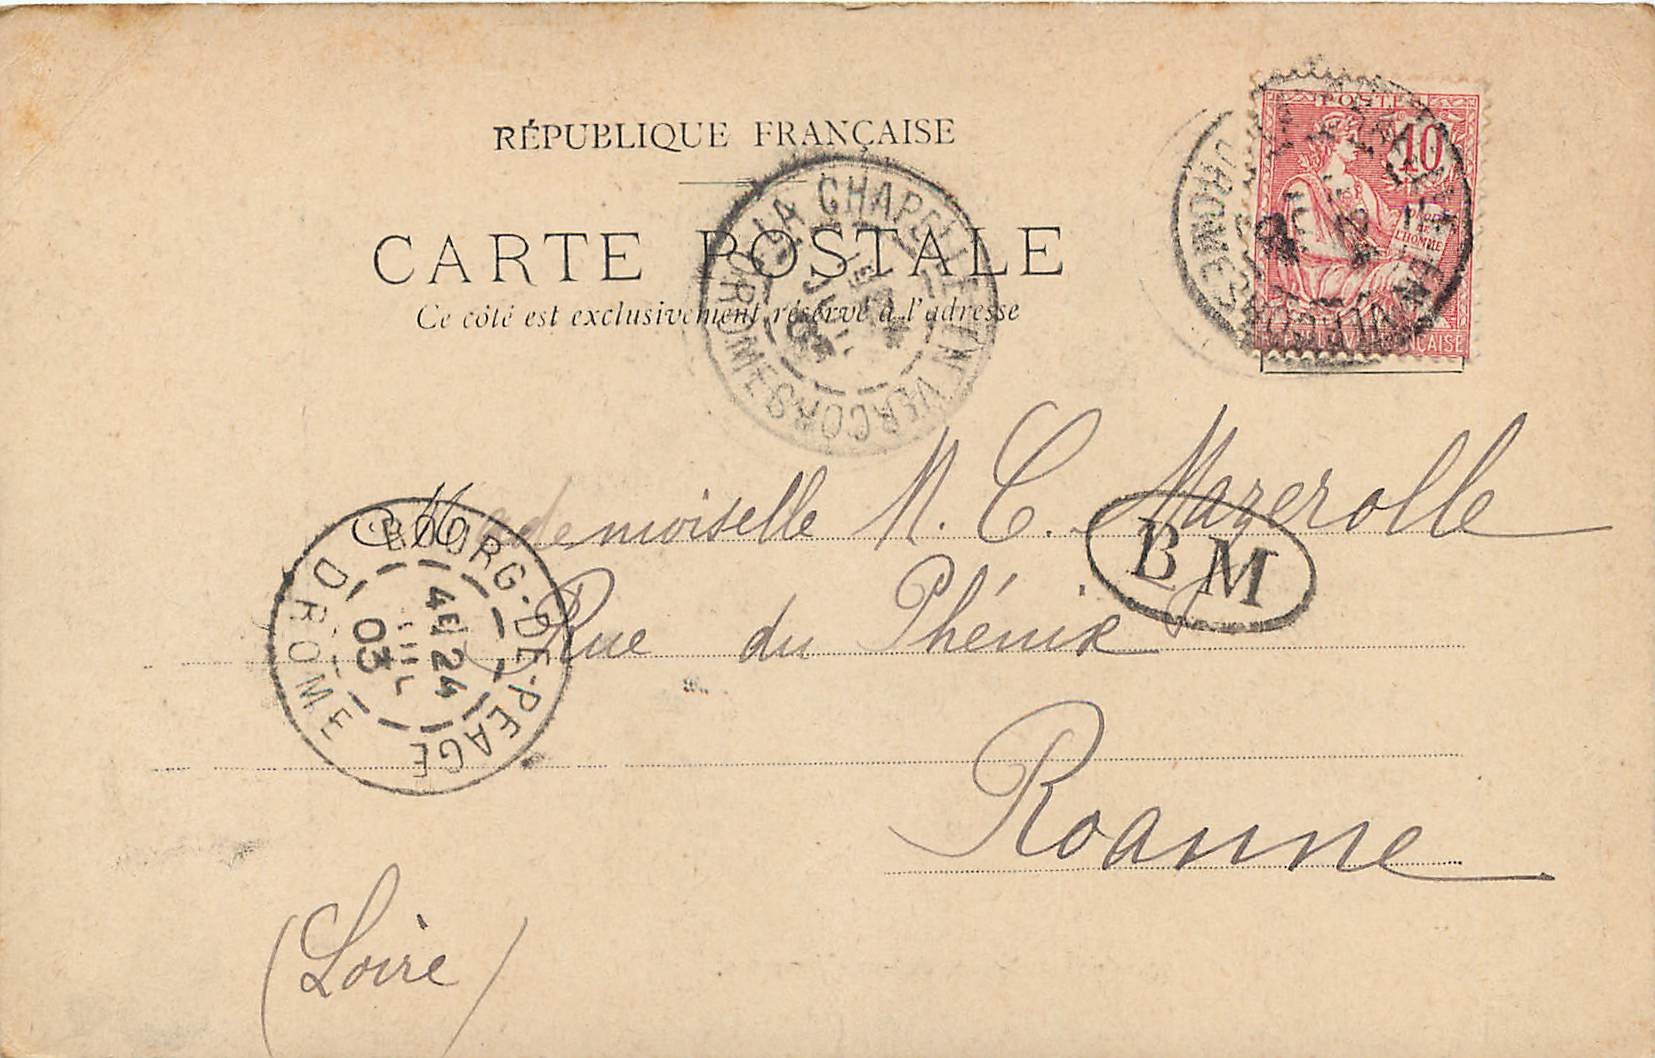 RÉPUBLIQUE FRANÇAISE
CARTE POSTALE
Ce côté est exclusivement réservé à l'adresse
POSTES
10
DROITS DE L'HOMME
LA CHAPELLE EN VERCORS DROME
03
LA CHAPELLE EN VERCORS DROME
Mademoiselle M. C. Mazerolle
BM
Rue du Phénix
BOURG-DE-PEAGE DROME
4E 24 JUIL 03
Roanne
(Loire)